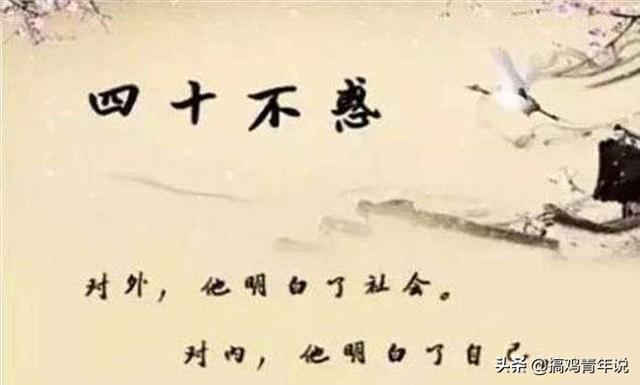 四十不惑
对外，他明白了社会。
对内，他明白了自己
头条 @搞鸡青年说